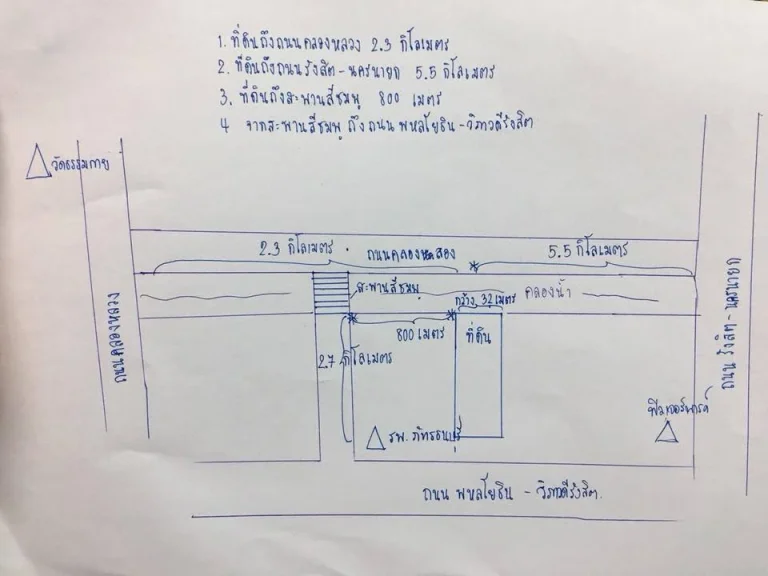 1. ที่ดินถึงถนนคลองหลวง 2.3 กิโลเมตร
2. ที่ดินถึงถนนรังสิต-นครนายก 5.5 กิโลเมตร
3. ที่ดินถึงสะพานสีชมพู 800 เมตร
4 จากสะพานสีชมพู ถึงถนน พหลโยธิน-วิภาวดีรังสิต
วัดธรรมกาย
2.3 กิโลเมตร
ถนนคลองสอง
5.5 กิโลเมตร
สะพานสีชมพู
คลองน้ำ
กว้าง 32 เมตร
800 เมตร
ที่ดิน
2.7 กิโลเมตร
ถนนคลองหลวง
ถนน รังสิต-นครนายก
ฟิวเจอร์พาร์ค
รพ. ภัทรธนบุรี
ถนน พหลโยธิน - วิภาวดีรังสิต.